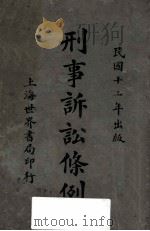 民國十三年出版
刑事訴訟條例
上海世界書局印行